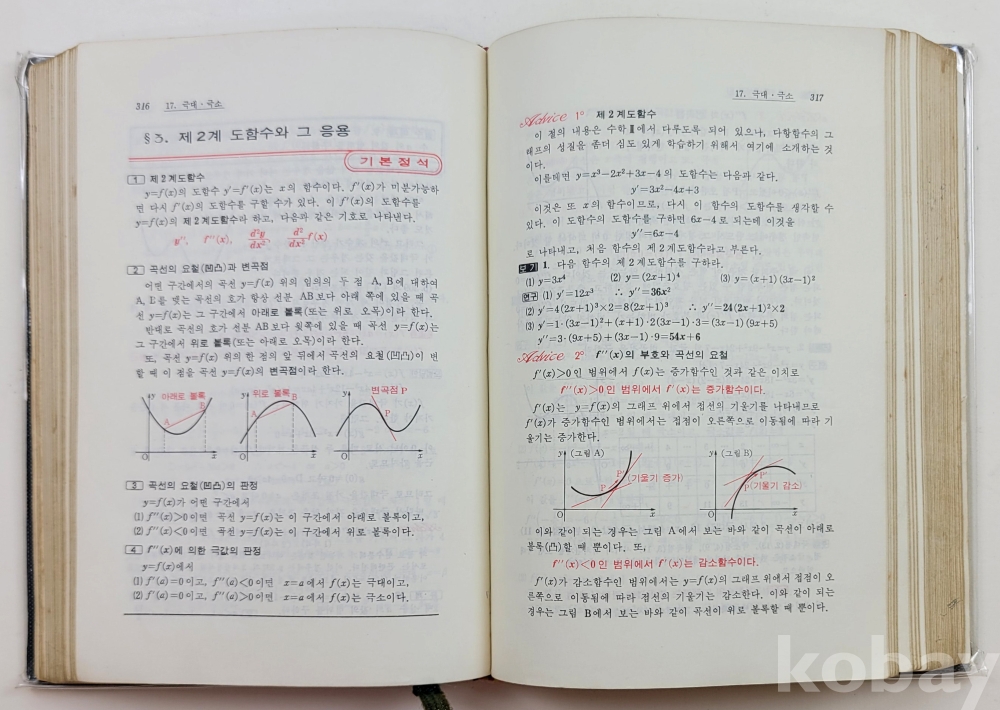 316 17. 극대·극소
§3. 제2계 도함수와 그 응용
기본정석
1 제2계도함수
y=f(x)의 도함수 y'=f'(x)는 x의 함수이다. f'(x)가 미분가능하
면 다시 f'(x)의 도함수를 구할 수가 있다. 이 f'(x)의 도함수를
y=f(x)의 제2계도함수라 하고, 다음과 같은 기호로 나타낸다.
y'', f''(x), d²y/dx², d²/dx² f(x)
2 곡선의 요철(凹凸)과 변곡점
어떤 구간에서의 곡선 y=f(x) 위의 임의의 두 점 A, B에 대하여
A, B를 맺는 곡선의 호가 항상 선분 AB보다 아래 쪽에 있을 때 곡
선 y=f(x)는 그 구간에서 아래로 볼록(또는 위로 오목)이라 한다.
반대로 곡선의 호가 선분 AB보다 윗쪽에 있을 때 곡선 y=f(x)는
그 구간에서 위로 볼록(또는 아래로 오목)이라 한다.
또, 곡선 y=f(x) 위의 한 점의 앞 뒤에서 곡선의 요철(凹凸)이 변
할 때 이 점을 곡선 y=f(x)의 변곡점이라 한다.
y 아래로 볼록 A B O x
y 위로 볼록 A B O x
y 변곡점 P P O x
3 곡선의 요철(凹凸)의 판정
y=f(x)가 어떤 구간에서
(1) f''(x)>0이면 곡선 y=f(x)는 이 구간에서 아래로 볼록이고,
(2) f''(x)<0이면 곡선 y=f(x)는 이 구간에서 위로 볼록이다.
4 f''(x)에 의한 극값의 판정
y=f(x)에서
(1) f'(a)=0이고, f''(a)<0이면 x=a에서 f(x)는 극대이고,
(2) f'(a)=0이고, f''(a)>0이면 x=a에서 f(x)는 극소이다.
17. 극대·극소 317
Advice 1° 제2계도함수
이 절의 내용은 수학Ⅱ에서 다루도록 되어 있으나, 다항함수의 그
래프의 성질을 좀더 심도 있게 학습하기 위해서 여기에 소개하는 것
이다.
이를테면 y=x³-2x²+3x-4의 도함수는 다음과 같다.
y'=3x²-4x+3
이것은 또 x의 함수이므로, 다시 이 함수의 도함수를 생각할 수
있다. 이 도함수의 도함수를 구하면 6x-4로 되는데 이것을
y''=6x-4
로 나타내고, 처음 함수의 제2계도함수라고 부른다.
보기 1. 다음 함수의 제2계도함수를 구하라.
(1) y=3x⁴ (2) y=(2x+1)⁴ (3) y=(x+1)(3x-1)²
연구 (1) y'=12x³ ∴ y''=36x²
(2) y'=4(2x+1)³×2=8(2x+1)³ ∴ y''=24(2x+1)²×2
(3) y'=1·(3x-1)²+(x+1)·2(3x-1)·3=(3x-1)(9x+5)
y''=3·(9x+5)+(3x-1)·9=54x+6
Advice 2° f''(x)의 부호와 곡선의 요철
f'(x)>0인 범위에서 f(x)는 증가함수인 것과 같은 이치로
f''(x)>0인 범위에서 f'(x)는 증가함수이다.
f'(x)는 y=f(x)의 그래프 위에서 접선의 기울기를 나타내므로
f'(x)가 증가함수인 범위에서는 접점이 오른쪽으로 이동됨에 따라 기
울기는 증가한다.
y (그림 A) P' P (기울기 증가) O x
y (그림 B) P' P (기울기 감소) O x
이와 같이 되는 경우는 그림 A에서 보는 바와 같이 곡선이 아래로
볼록(凸)할 때 뿐이다. 또,
f''(x)<0인 범위에서 f'(x)는 감소함수이다.
f'(x)가 감소함수인 범위에서는 y=f(x)의 그래프 위에서 접점이 오
른쪽으로 이동됨에 따라 접선의 기울기는 감소한다. 이와 같이 되는
경우는 그림 B에서 보는 바와 같이 곡선이 위로 볼록할 때 뿐이다.
kobay